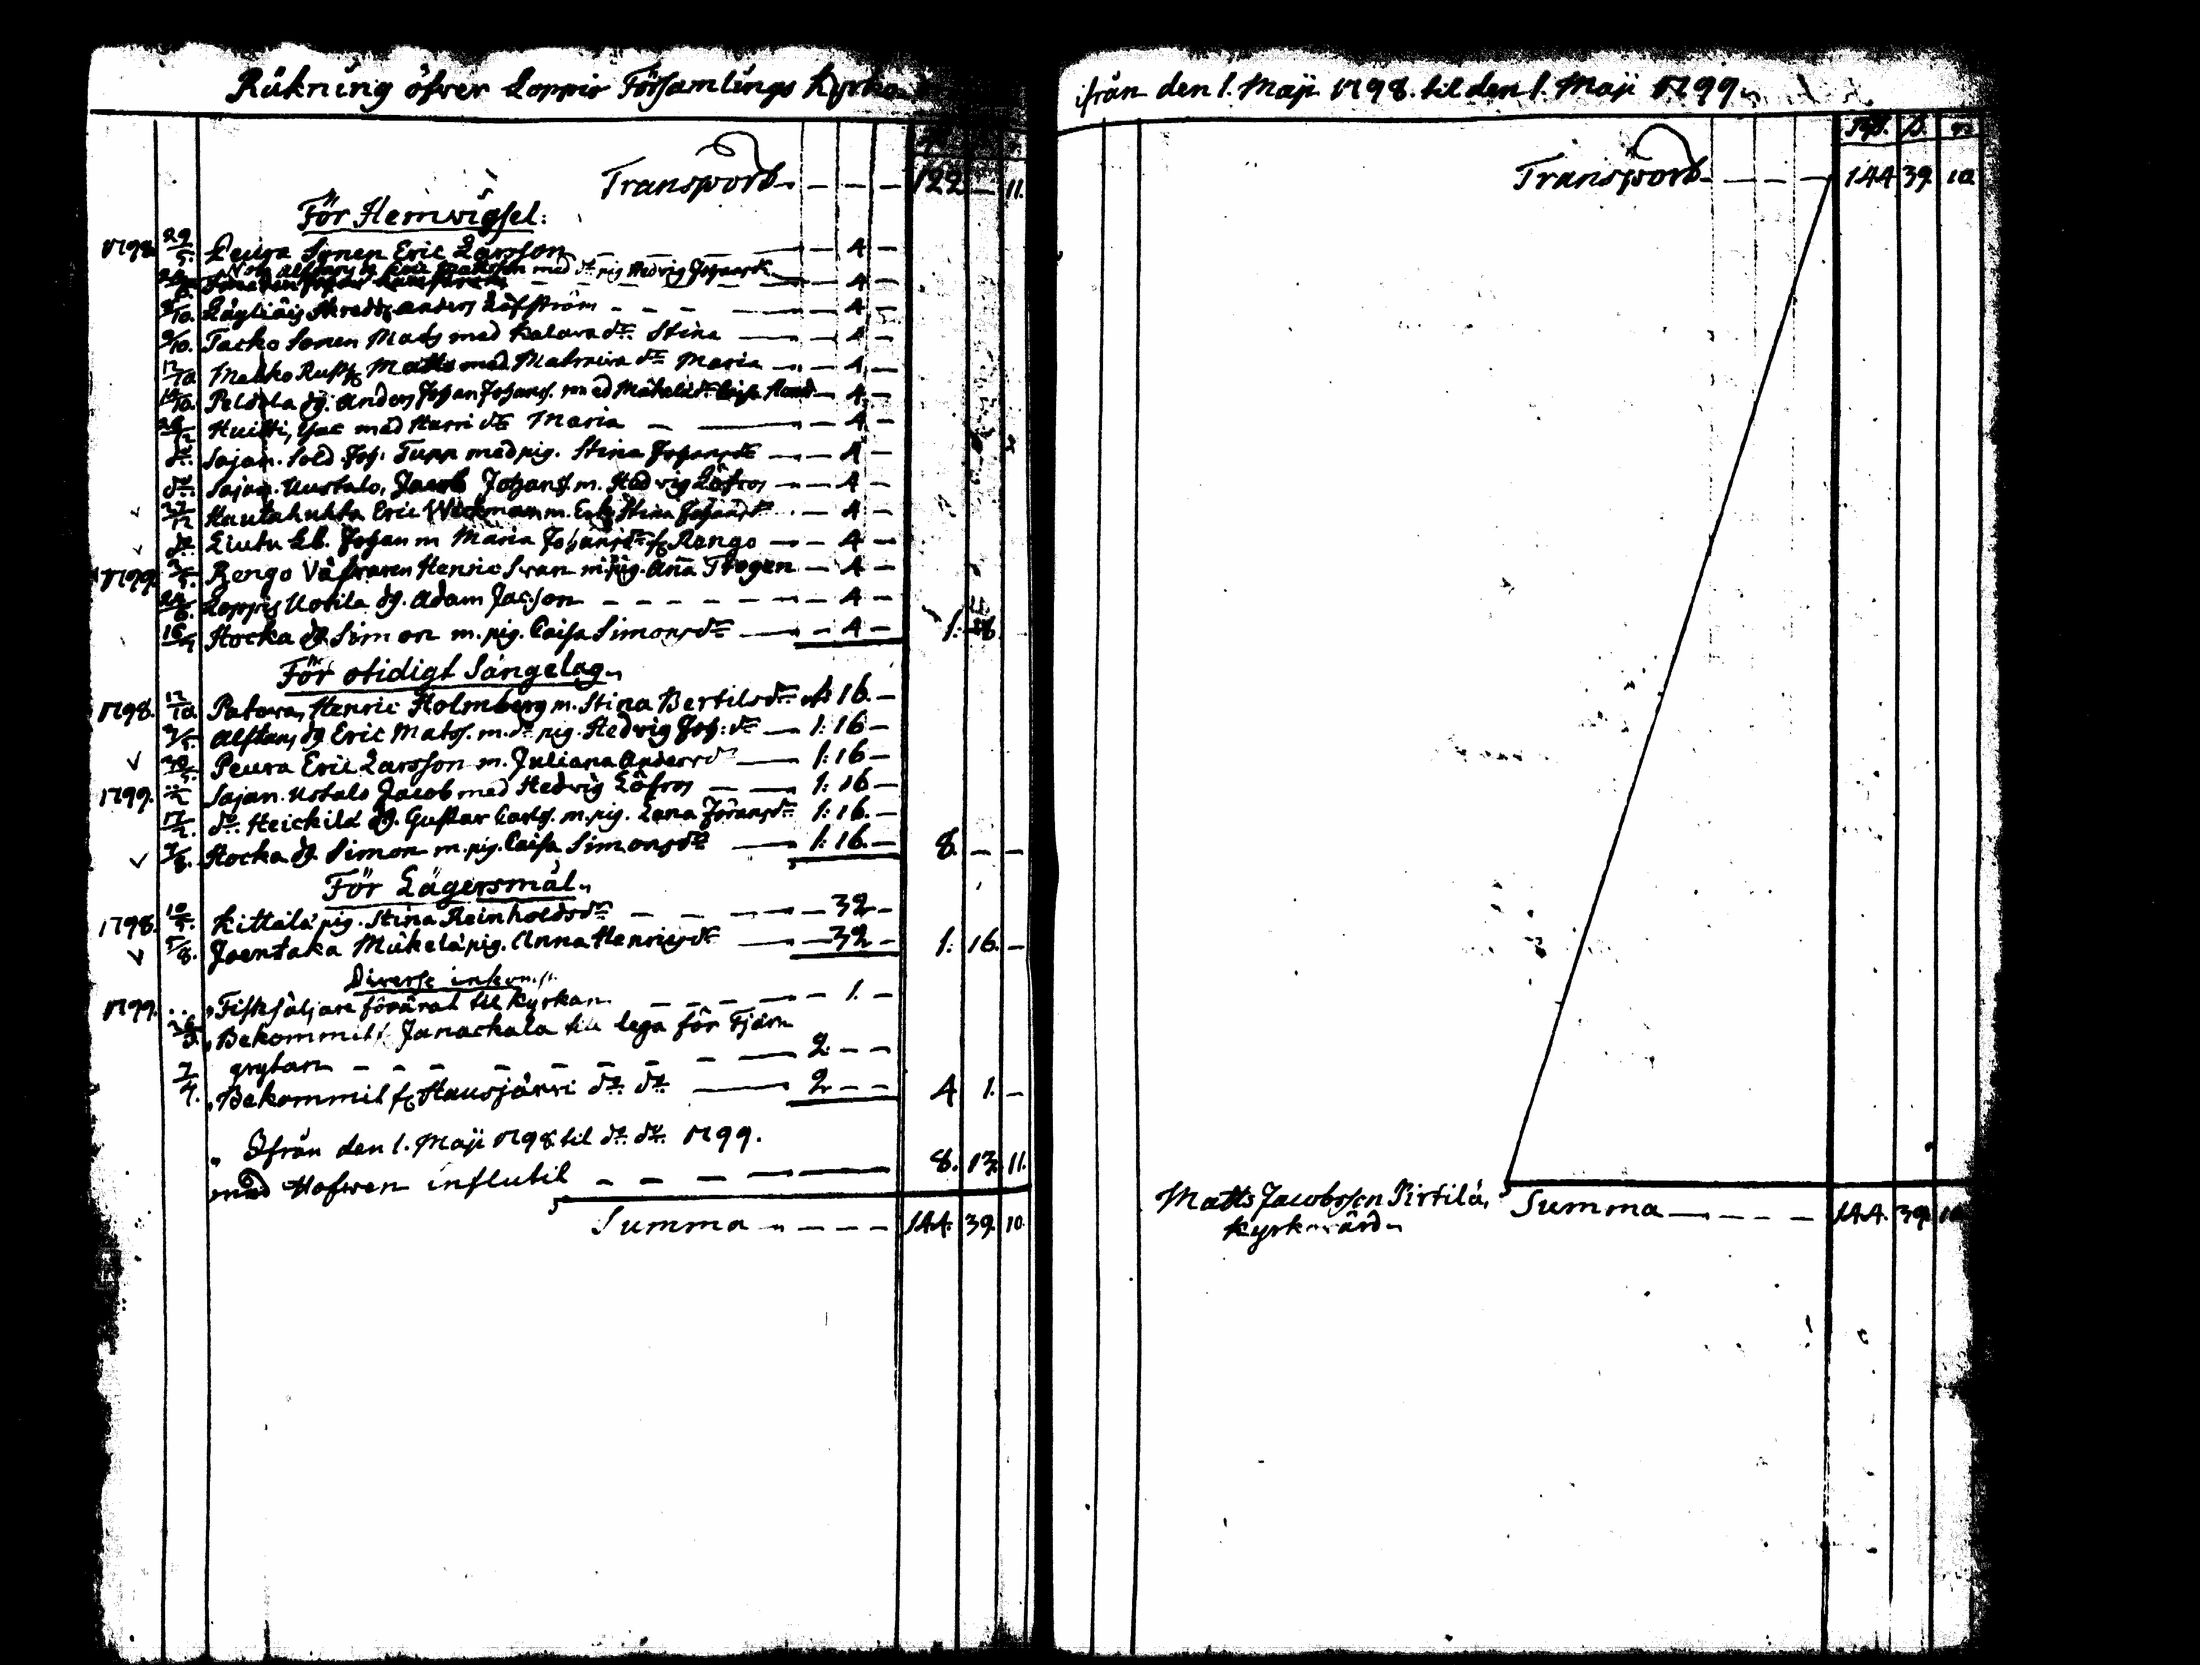 Räkning öfver Loppis Församlings Kyrko
Transport 122 — 11.
För Hemvigsel:
1798 29/5. Peura Sonen Eric Larsson — 4 —
med do pig Hedvig Johansdr — 4 —
9/10. Läyliäis Skredd. Anders Löfström — 4 —
9/10. Tacko Sonen Mats med Kalava dr Stina — 4 —
12/10. Matts med dr Maria — 4 —
Peldola dg. Anders Johan Johans. med — 4 —
Huitti, Jac med Harri dr Maria — 4 —
do. Sajan. Sold. Joh. Tupp med pig. Stina Johansdr — 4 —
do. Sajan. Uustalo, Jacob Johans. m. Hedvig Löfros — 4 —
27/12 Hautahuhta Eric Wickman m. Stina Johansdr — 4 —
do. Liutu Johan m Maria Johansdr f. Rengo — 4 —
1799 Rengo Väfvaren Henric Svan m. pig. Anna Trogen — 4 —
24/6. Loppis Uotila dg. Adam Jacson — 4 —
16/4 Hocka dg. Simon m. pig. Caisa Simonsdr — 4 — 1: 8
För otidigt Sängelag.
1798. 12/10. Patava, Henric Holmberg m. Stina Bertilsdr 1: 16. —
Alftans dg Eric Mats. m. do pig. Hedvig Joh: dr 1: 16 —
Peura Eric Larsson m. Juliana Andersdr 1: 16 —
1799. Sajan. Ustalo Jacob med Hedvig Löfros 1: 16 —
do. Heickilä dg. Gustav Carls. m. pig. Lena Jöransdr 1: 16. —
Hocka dg. Simon m. pig. Caisa Simonsdr 1: 16. — 8. — —
För Lägersmål.
1798. 10/5. Kittilä pig. Stina Reinholdsdr — 32 —
5/8. Joentaka Mäkelä pig. Anna Henricsdr — 32 — 1: 16. —
Diverse inkoms.
1799. Fisksäljare förärat til Kyrkan — 1. —
26/3. Bekommit f. Janackala til lega för Tjäru
grytan 2. — —
7/4. Bekommit f. Hausjärvi do do 2 — — 4 1. —
Ifrån den 1. Maji 1798 til do do 1799.
med Hofven influtit 8. 13. 11.
Summa 144. 39. 10.
ifrån den 1. Maji 1798. til den 1. Maji 1799.
Rd. s.
Transport 144 39. 10
Matts Jacobsson Pirtilä,
Kyrkovärd
Summa 144. 39. 10